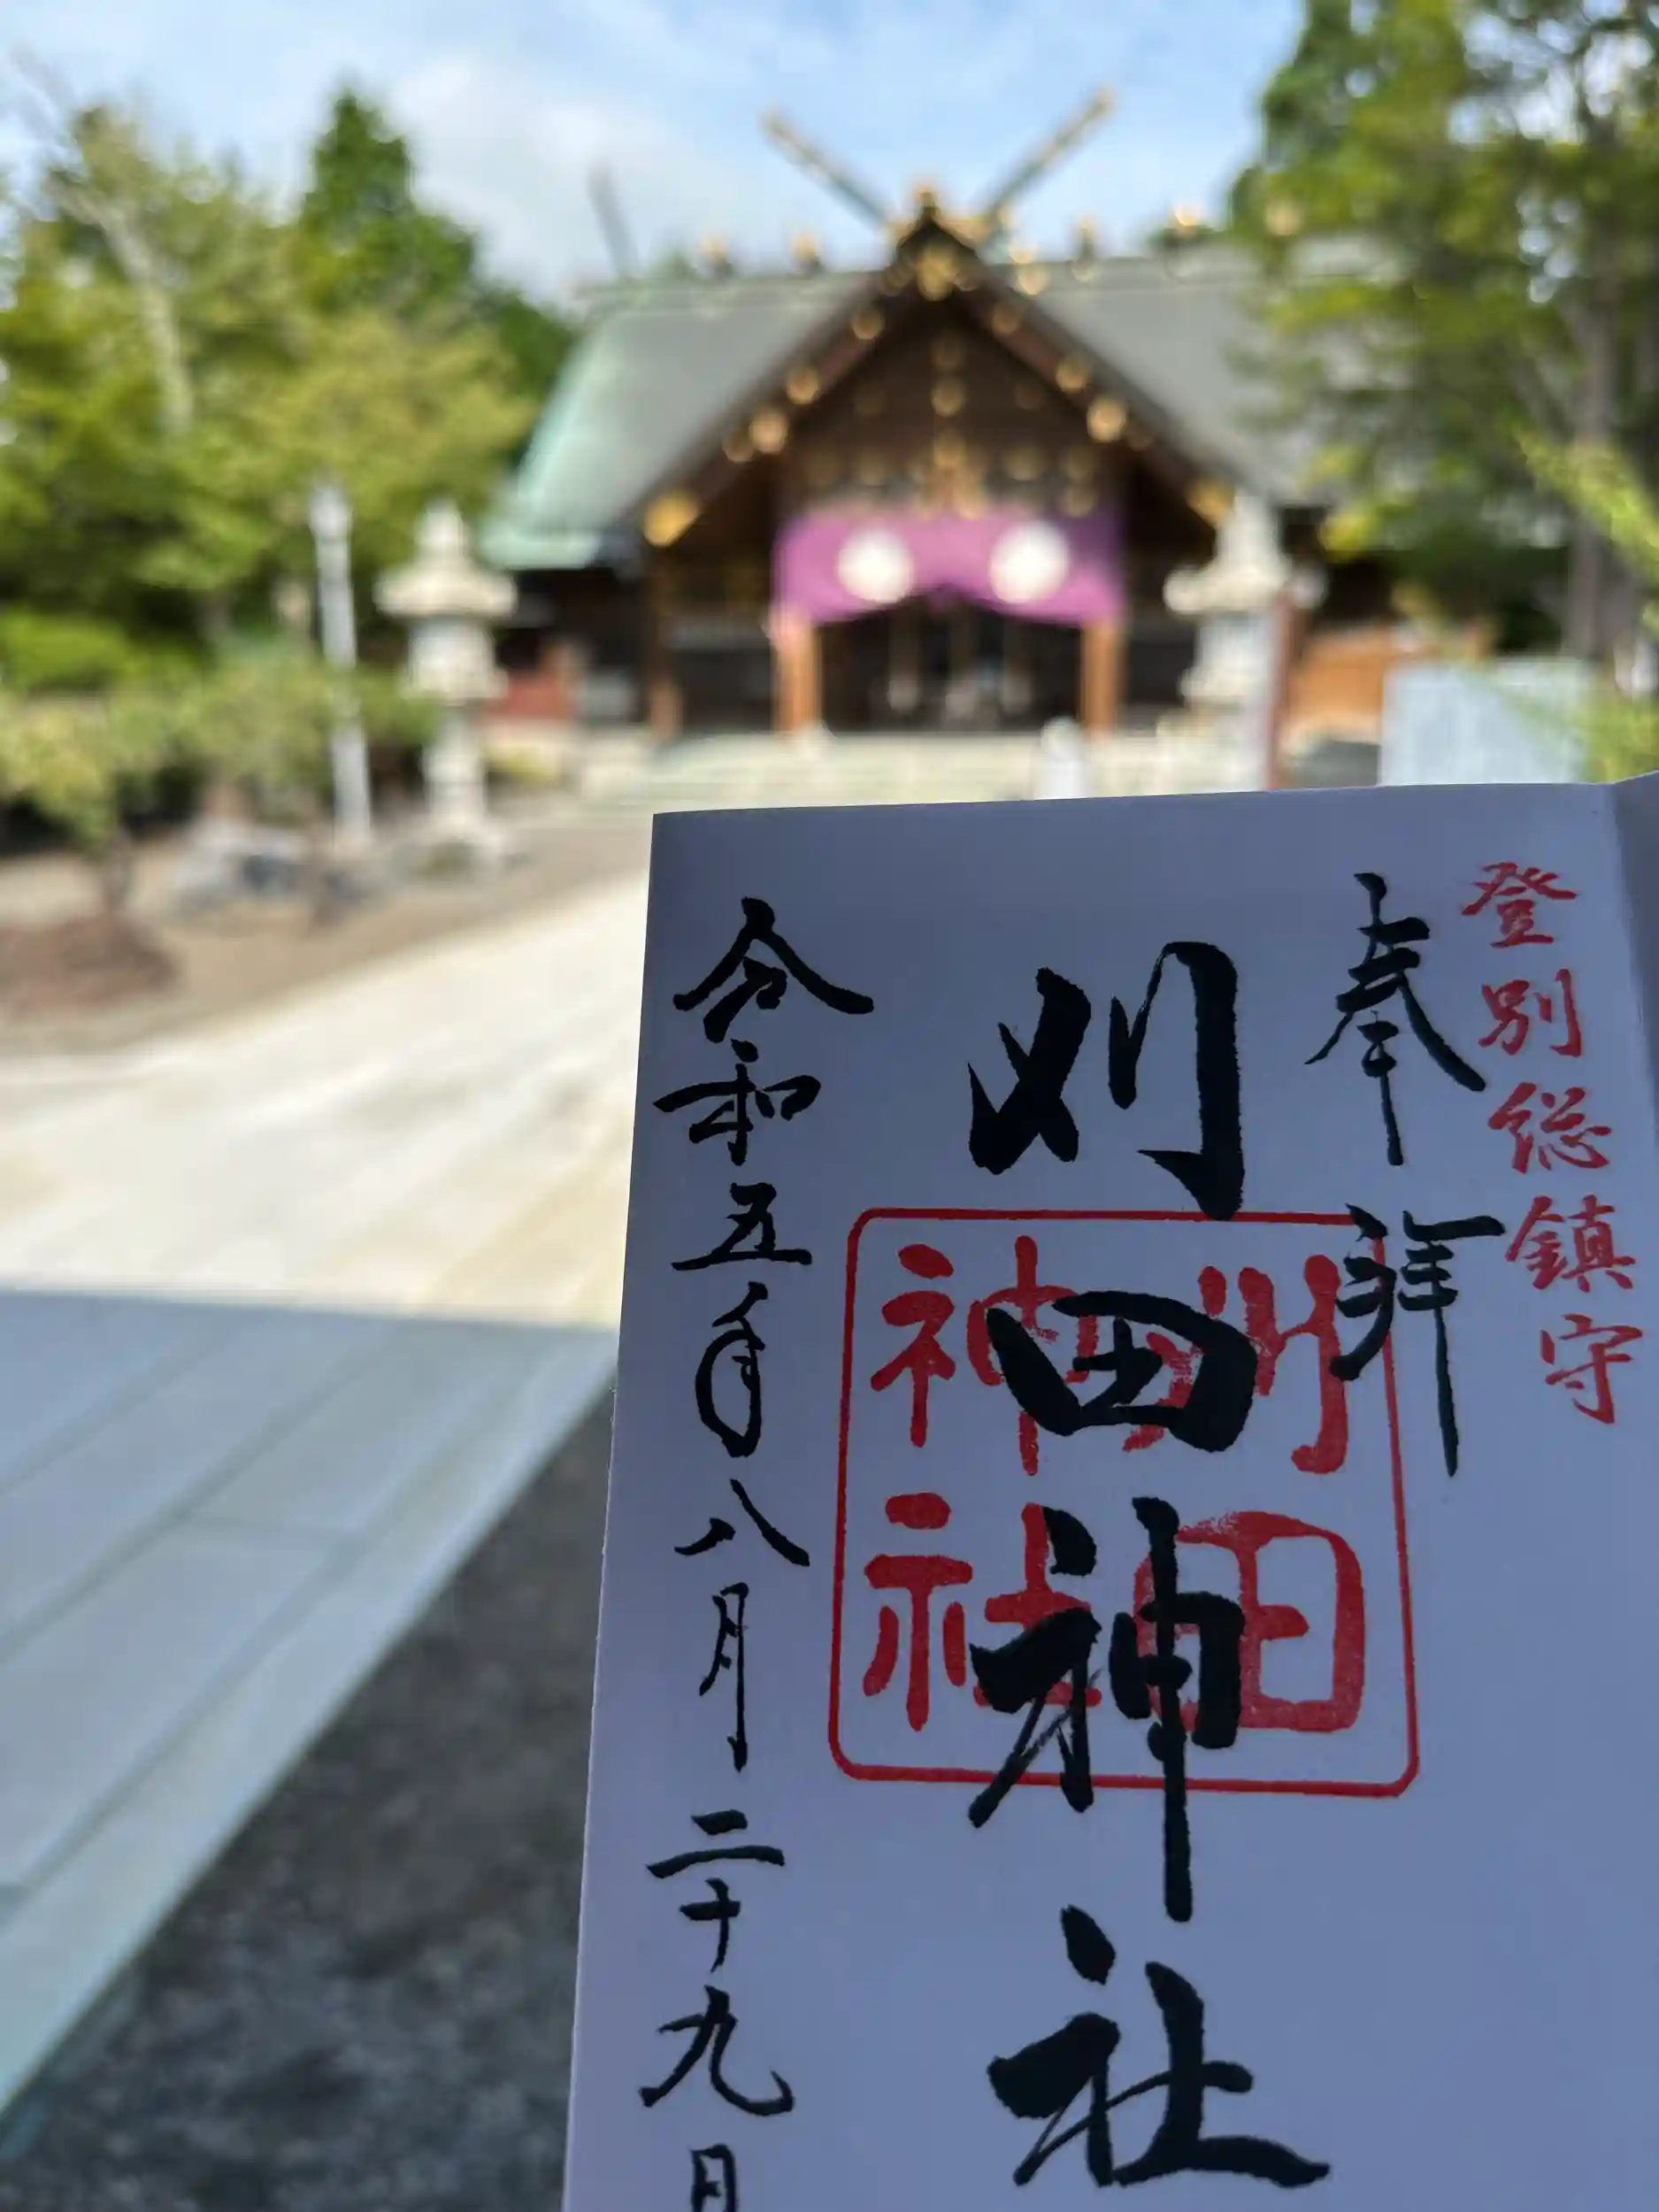 登別総鎮守
奉拝
刈田神社
刈田
神社
令和五年八月二十九日